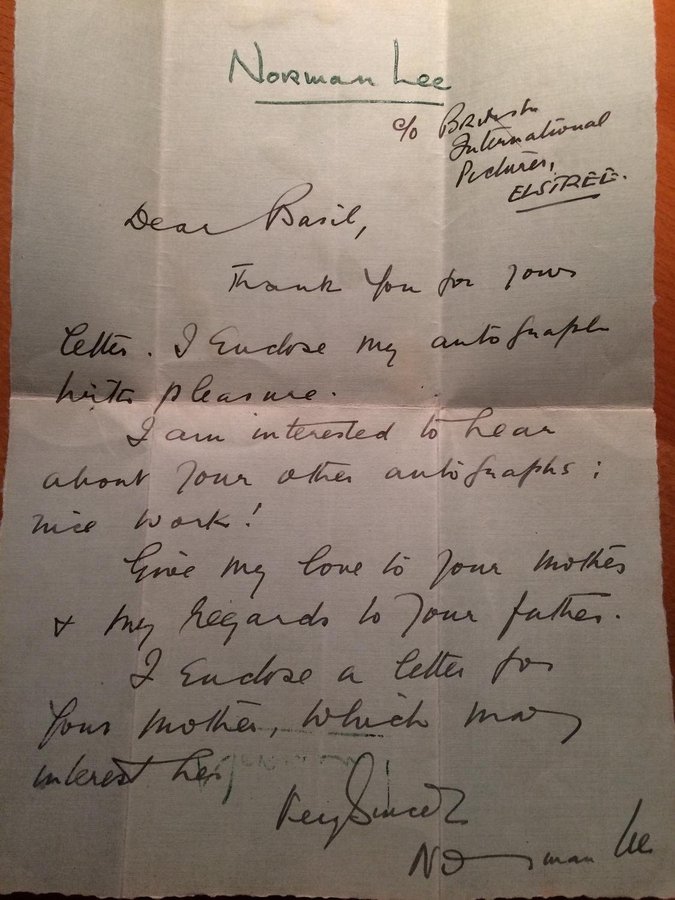 Norman Lee
c/o British
International
Pictures,
ELSTREE.
Dear Basil,
Thank you for your
letter. I enclose my autograph
with pleasure.
I am interested to hear
about your other autographs:
nice work!
Give my love to your mother
& my regards to your father.
I enclose a letter for
your mother, which may
interest her.
Very Sincerely
Norman Lee